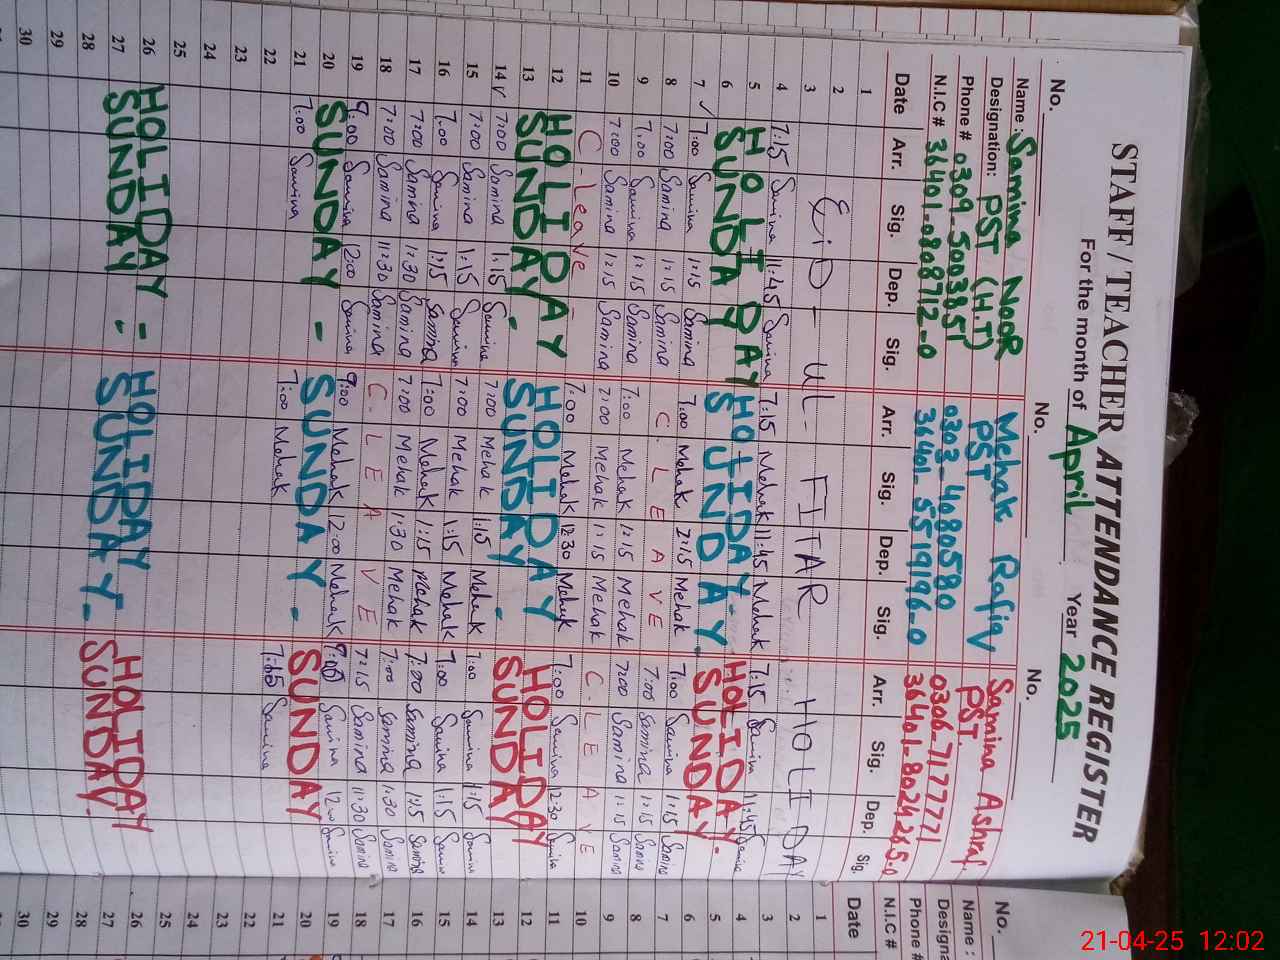 STAFF / TEACHER ATTENDANCE REGISTER
For the month of April Year 2025
No. No. No.
Name : Samina NooR Mehak Rafiq Samina Ashraf
Designation: PST (H.T) PST PST.
Phone # 0309-5003851 0303-4080580 0306-7177771
N.I.C # 36401-0808712-0 36401-5519196-0 36401-8024265-0
Date Arr. Sig. Dep. Sig. Arr. Sig. Dep. Sig. Arr. Sig. Dep. Sig.
1
2
3 EiD - UL - FITAR HOLIDAY
4 7:15 Samina 11:45 Samina 7:15 Mehak 11:45 Mehak 7:15 Samina 11:45 Samina
5 HOLIDAY HOLIDAY- HOLIDAY.
6 SUNDAY SUNDAY. SUNDAY
7 ✓ 7:00 Samina 1:15 Samina 7:00 Mehak 2:15 Mehak 7:00 Samina 1:15 Samina
8 7:00 Samina 1:15 Samina C. LEAVE 7:00 Samina 1:15 Samina
9 7:00 Samina 1:15 Samina 7:00 Mehak 1:15 Mehak 7:00 Samina 1:15 Samina
10 7:00 Samina 1:15 Samina 7:00 Mehak 1:15 Mehak C. LEAVE
11 C-Leave 7:00 Mehak 12:30 Mehak 7:00 Samina 12:30 Samina
12 HOLIDAY HOLIDAY HOLIDAY
13 SUNDAY- SUNDAY- SUNDAY
14 ✓ 7:00 Samina 1:15 Samina 7:00 Mehak 1:15 Mehak 7:00 Samina 1:15 Samina
15 7:00 Samina 1:15 Samina 7:00 Mehak 1:15 Mehak 7:00 Samina 1:15 Samina
16 7:00 Samina 1:15 Samina 7:00 Mehak 1:15 Mehak 7:00 Samina 1:15 Samina
17 7:00 Samina 11:30 Samina 7:00 Mehak 1:30 Mehak 7:00 Samina 1:30 Samina
18 7:00 Samina 11:30 Samina C. LEAVE 7:15 Samina 11:30 Samina
19 9:00 Samina 12:00 Samina 9:00 Mehak 12:00 Mehak 9:00 Samina 12:00 Samina
20 SUNDAY - SUNDAY - SUNDAY
21 7:00 Samina 7:00 Mehak Samina
22
23
24
25
26 HOLIDAY - HOLIDAY HOLIDAY
27 SUNDAY - SUNDAY- SUNDAY.
28
29
30
No.
Name :
Phone #
N.I.C #
Date
1
2
3
4
5
6
7
8
9
10
11
12
13
14
15
16
17
18
19
20
21
22
23
24
25
26
27
28
29
30
21-04-25 12:02